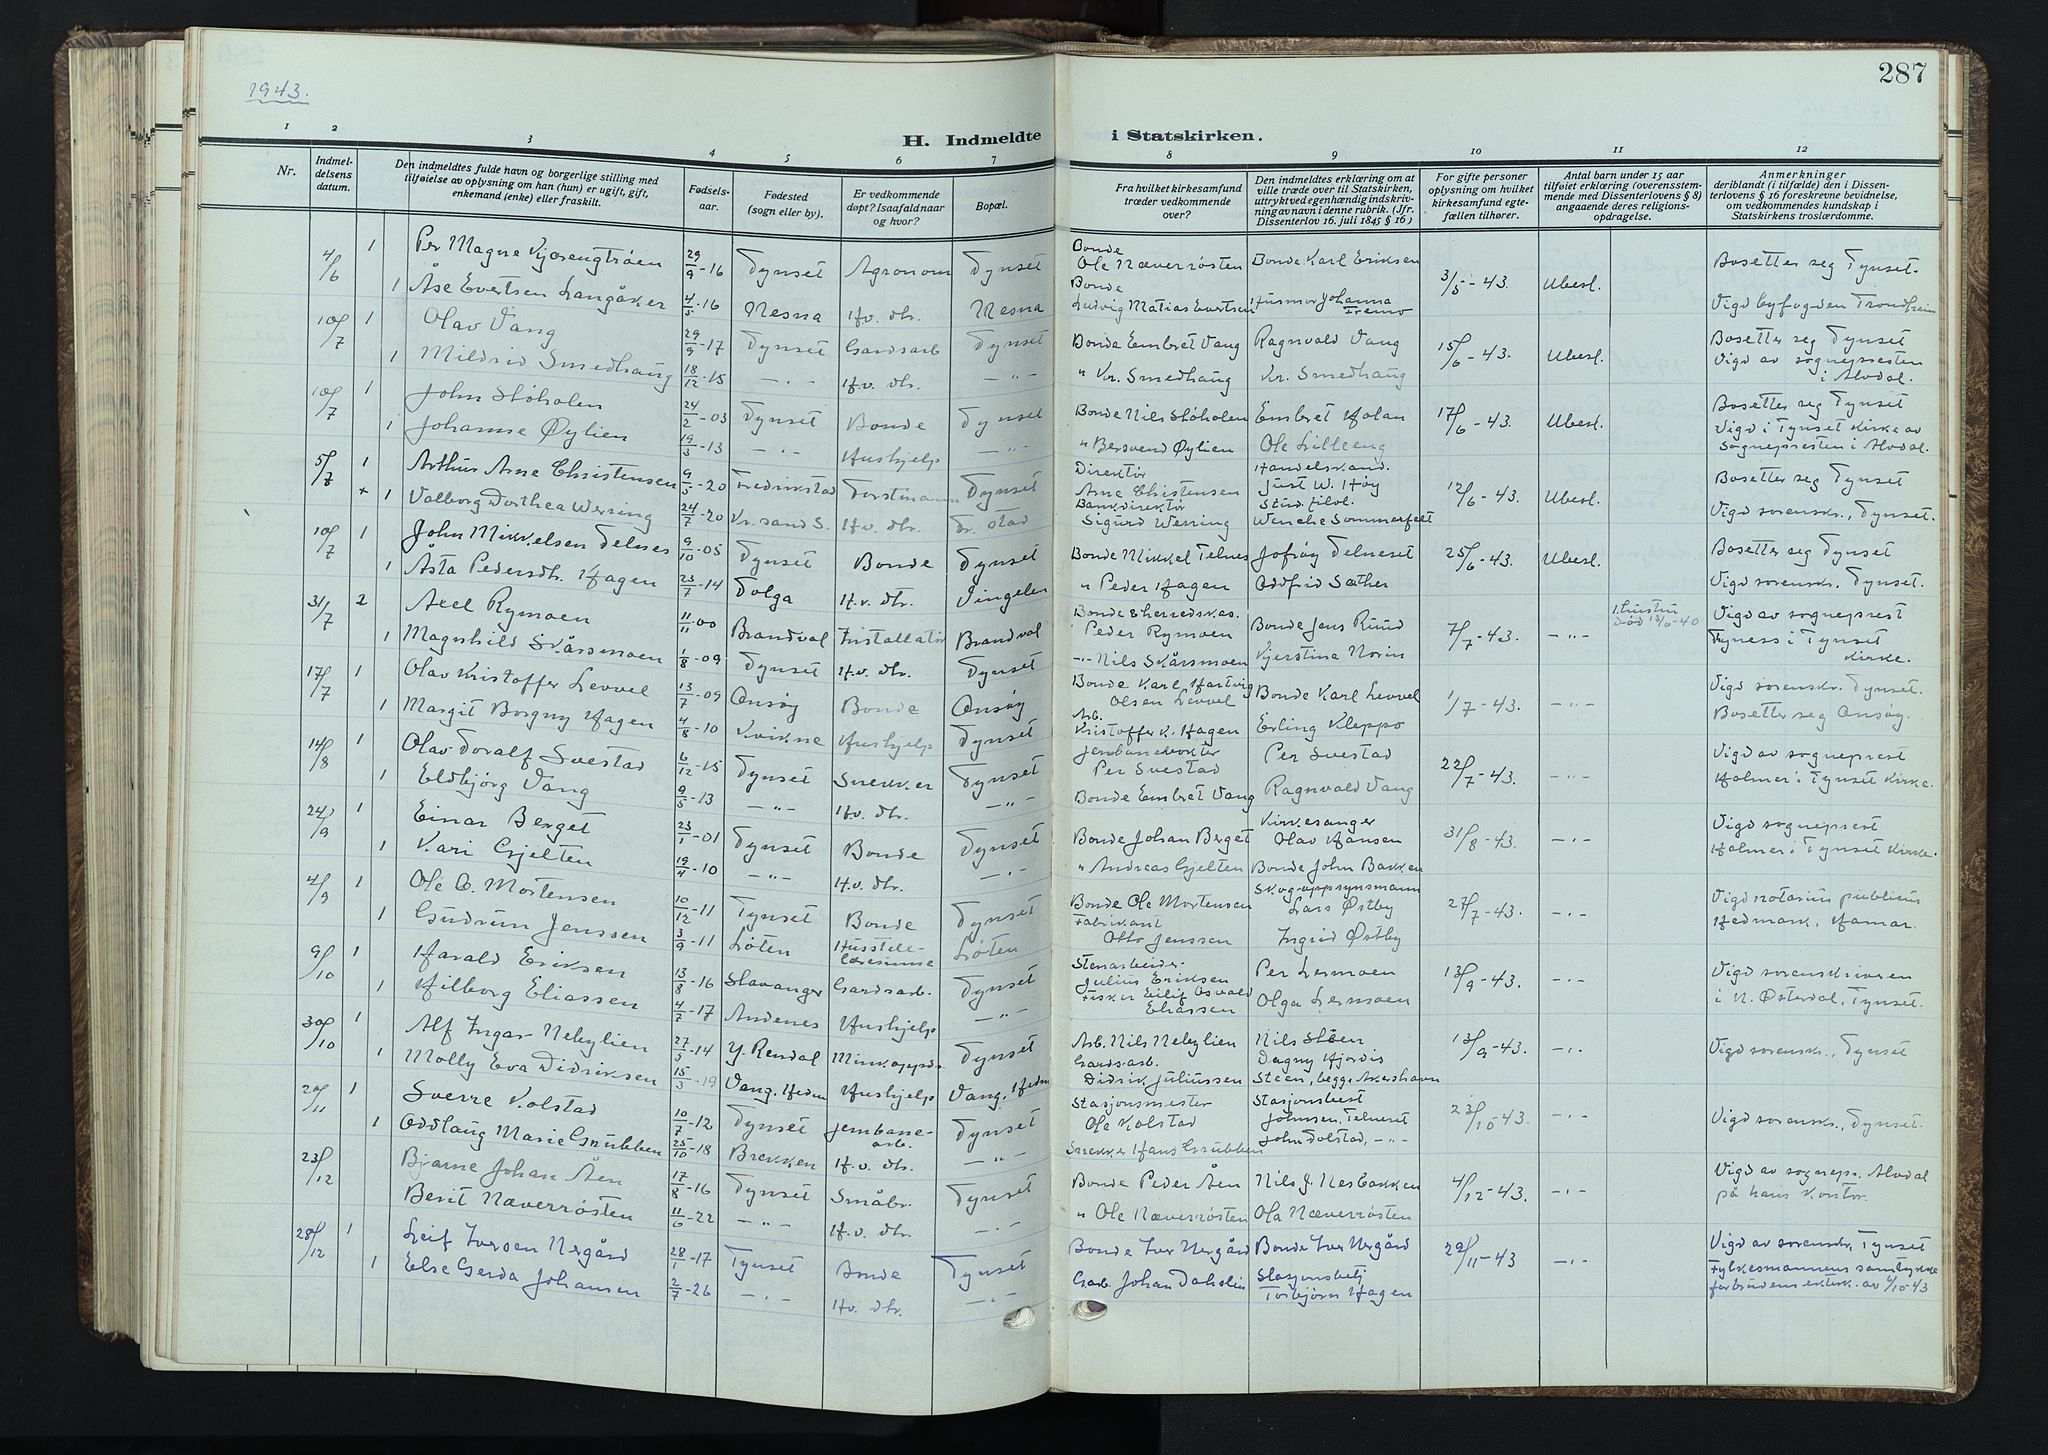 287
1943.
H. Indmeldte i Statskirken.
1 2 3 4 5 6 7 8 9 10 11 12
Nr.
Indmeldelsens datum.
Den indmeldtes fulde havn og borgerlige stilling med tilføielse av oplysning om han (hun) er ugift, gift, enkemand (enke) eller fraskilt.
Fødselsaar.
Fødested (sogn eller by).
Er vedkommende døpt? Isaafald naar og hvor?
Bopæl.
Fra hvilket kirkesamfund træder vedkommende over?
Den indmeldtes erklæring om at ville træde over til Statskirken, uttrykt ved egenhændig indskrivning av navn i denne rubrik. (Jfr. Dissenterlov 16. juli 1845 § 16)
For gifte personer oplysning om hvilket kirkesamfund egtefællen tilhører.
Antal barn under 15 aar tilføiet erklæring (overensstemmende med Dissenterlovens § 8) angaaende deres religionsopdragelse.
Anmerkninger deriblandt (i tilfælde) den i Dissenterlovens § 16 foreskrevne bevidnelse, om vedkommendes kundskap i Statskirkens troslærdomme.
4/6 1 Per Magne Kjærengtrøen 29/9-16 Tynset Agronom Tynset Bonde Ole Næverrøsten Bonde Karl Eriksen 3/5-43. Ubesl. Bosetter seg Tynset.
1 Åse Evertsen Langåker 4/5-16 Nesna H.v. dtr. Nesna Bonde Ludvig Matias Evertsen Husmor Johanna Fremo Vigd byfogden Trondheim
10/7 1 Olav Vang 29/9-17 Tynset Gardsarb Tynset Bonde Embret Vang Ragnvald Vang 15/6-43. Ubesl. Bosetter seg Tynset
1 Mildrid Smedhaug 18/12-15 -"- H.v. dtr. -"- " Kr. Smedhaug Kr. Smedhaug Vigd av sognepresten i Alvdal.
10/7 1 John Støholen 24/2-03 Tynset Bonde Tynset Bonde Nils Støholen Embret Holan 17/6-43. Ubesl. Bosetter seg Tynset
1 Johanne Øylien 19/3-13 -"- Hushjelp -"- " Bersvend Øylien Ole Lilleeng Vigd i Tynset Kirke av Sognepresten i Alvdal.
5/8 1 Arthur Arne Christensen 9/5-20 Fredrikstad Forstmann Tynset Direktør Arne Christensen Handelskand. Just W. Høy 12/6-43. Ubesl. Bosetter seg Tynset
+ 1 Valborg Dorthea Werring 24/7-20 Kr. sand S. H.v. dtr. Fr. stad Bankdirektør Sigurd Werring Stud. filol. Wenche Sommerfelt Vigd sorenskr., Tynset.
10/7 1 John Mikkelsen Telnes 9/10-05 Tynset Bonde Tynset Bonde Mikkel Telnes Jofrøy Telneset 25/6-43. Ubesl. Bosetter seg Tynset
1 Åsta Pedersdtr. Hagen 23/7-14 Tolga H.v. dtr. Vingelen " Peder Hagen Oddfrid Sæther Vigd sorenskr. Tynset.
31/7 2 Axel Rymoen 11/11-00 Brandval Installatør Brandval Bonde & herredskas. Peder Rymoen Bonde Jens Ruud 7/7-43. -"- Vigd av sogneprest
1 Magnhild Skårsmoen 1/8-09 Tynset H.v. dtr. Tynset -"- Nils Skårsmoen Kjerstine Norin Tyness i Tynset Kirke.
17/7 1 Olav Kristoffer Levvel 13/7-09 Onsøy Bonde Onsøy Bonde Karl Hartvig Olsen Levvel Bonde Karl Levvel 1/7-43. -"- Vigd sorenskr. Tynset.
1 Margit Borgny Hagen 4/8-10 Kvikne Hushjelp Tynset Arb. Kristoffer K. Hagen Erling Kleppo Bosetter seg Onsøy.
14/8 1 Olav Toralf Svestad 6/12-15 Tynset Snekker Tynset Jernbanevokter Per Svestad Per Svestad 22/7-43. -"- Vigd av sogneprest
1 Eldbjørg Vang 9/5-13 -"- H.v. dtr. -"- Bonde Embret Vang Ragnvald Vang Holmer i Tynset Kirke.
24/9 1 Einar Berget 23/1-01 Tynset Bonde Tynset Bonde Johan Berget Kirkesanger Olav Hansen 31/8-43. -"- Vigd sogneprest
1 Kari Gjelten 19/4-10 -"- H.v. dtr. -"- " Andreas Gjelten Bonde John Bakken Holmer i Tynset Kirke.
4/9 1 Ole O. Mortensen 10/12-11 Tynset Bonde Tynset Bonde Ole Mortensen Skogoppsynsmann Lars Østby 27/7-43. -"- Vigd notarius publicus
1 Gudrun Jenssen 3/9-11 Løten Husstellærerinne Løten Fabrikant Otto Jenssen Ingrid Østby Hedmark, Hamar.
9/10 1 Harald Eriksen 13/8-16 Stavanger Gardsarb. Tynset Stenarbeider Julius Eriksen Per Lermoen 13/9-43. -"- Vigd sorenskriveren
1 Hilborg Eliassen 4/7-17 Andenes Hushjelp -"- Fisker Eilif Osvald Eliassen Olga Lermoen i N. Østerdal, Tynset.
30/10 1 Alf Ingar Nebylien 27/5-14 Y. Rendal Minkoppdr. Tynset Arb. Nils Nebylien Nils Steen 13/9-43. -"- Vigd sorenskr., Tynset
1 Molly Eva Didriksen 15/3-19 Vang, Hedm Hushjelp Vang, Hedm Gardsarb. Didrik Juliussen Dagny Hjørdis Steen, begge Akershavn
20/11 1 Sverre Kolstad 10/7-12 Tynset Jernbanearb. Tynset Stasjonsmester Ole Kolstad Stasjonsbest Johnsen, Telneset 23/10-43. -"- Vigd sorenskr., Tynset.
1 Oddlaug Marie Grubben 25/10-18 Brekken H.v. dtr. -"- Snekker Hans Grubben John Tolstad, -"-
23/12 Bjarne Johan Åen 17/8-16 Tynset Småbr. Tynset Bonde Peder Åen Nils J. Nesbakken 4/12-43. -"- Vigd av sognepr. Alvdal
Berit Næverrøsten 11/6-22 -"- H.v. dtr. -"- " Ole Næverrøsten Ola Næverrøsten på hans kontor.
28/12 1 Leif Iversen Nergård 28/1-17 Tynset Bonde Tynset Bonde Iver Nergård Bonde Iver Nergård 29/11-43 -"- Vigd av sorenskr. Tynset
1 Else Gerda Johansen 2/7-26 -"- H.v. dtr. -"- Garb. Johan Dahslin Stasjonsbetj Torbjørn Hagen Fylkesmannens samtykke